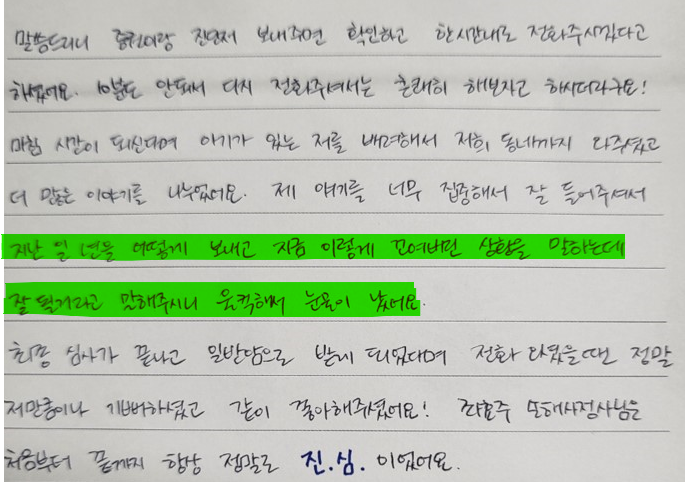 말씀드리니 증권이랑 진단서 보내주면 확인하고 한시간내로 전화주시겠다고
하셨어요. 10분도 안되서 다시 전화주셔서는 흔쾌히 해보자고 하시더라구요!
마침 시간이 되신다며 아기가 있는 저를 배려해서 저희 동네까지 와주셨고
더 많은 이야기를 나누었어요. 제 얘기를 너무 집중해서 잘 들어주셔서
지난 일 년을 어떻게 보내고 지금 이렇게 꼬여버린 상황을 말하는데
잘 될거라고 말해주시니 울컥해서 눈물이 났어요.
최종 심사가 끝나고 일반암으로 받게 되었다며 전화 하셨을땐 정말
저만큼이나 기뻐하셨고 같이 좋아해주셨어요! 손해사정사님은
처음부터 끝까지 항상 정말로 진.심. 이었어요.